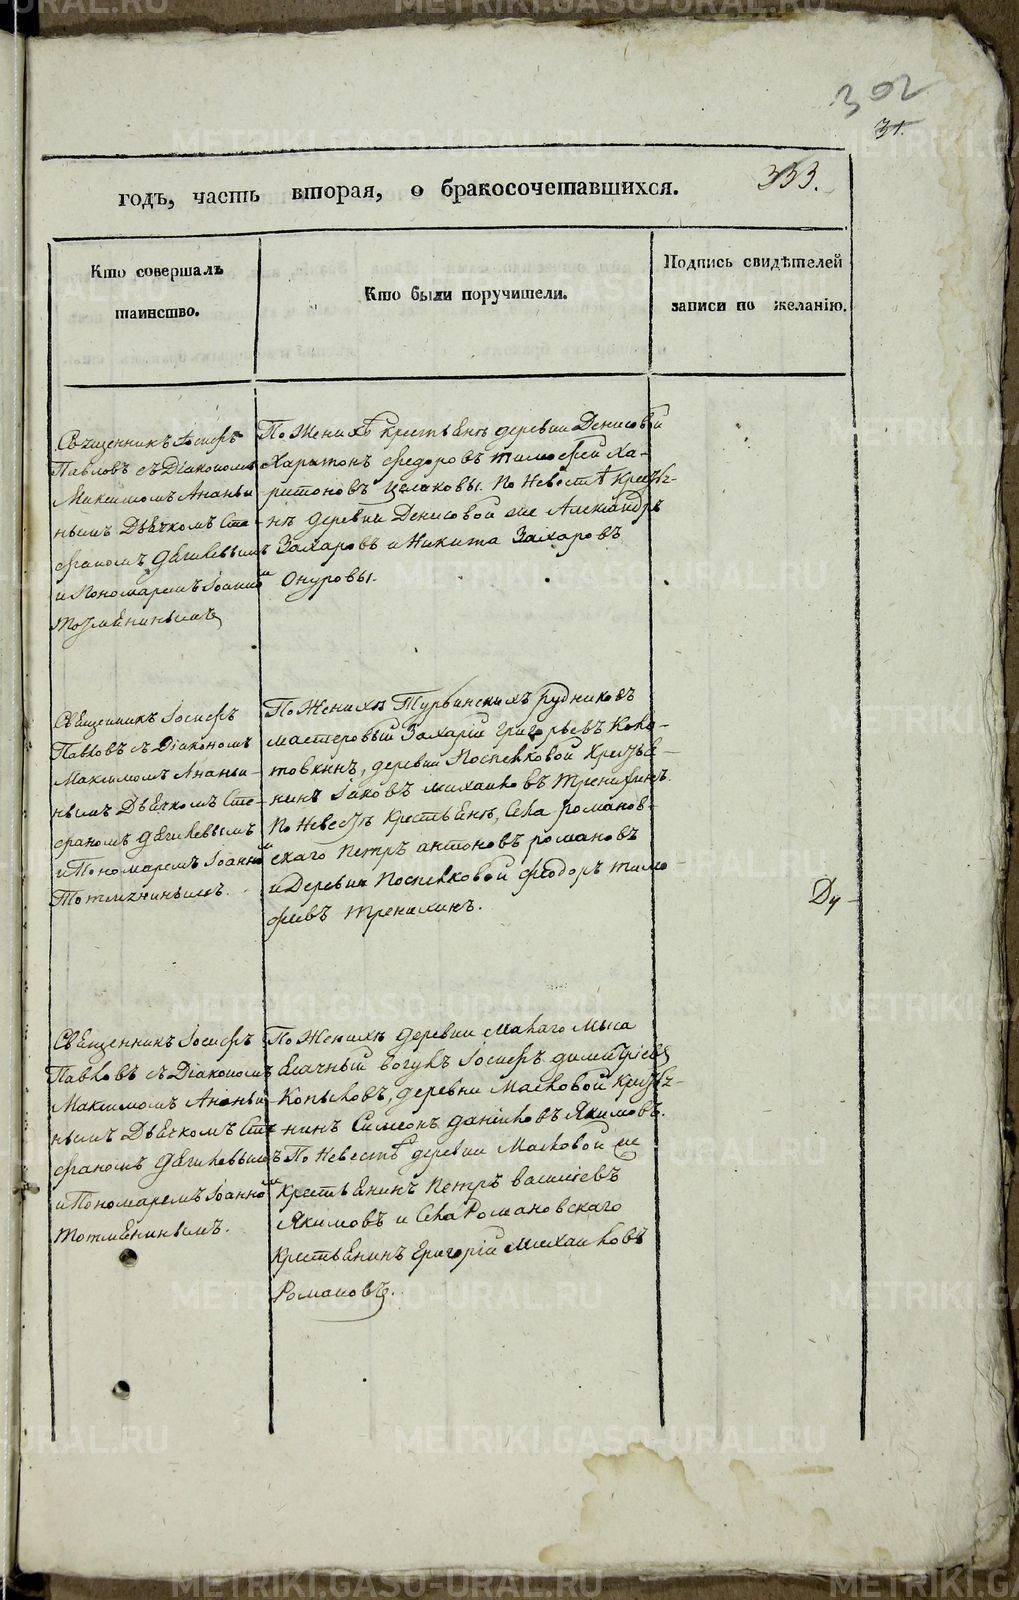 302
31.
годъ, часть вторая, о бракосочетавшихся.
333.
Кто совершалъ
таинство.
Кто были поручители.
Подпись свидѣтелей
записи по желанію.
Священникъ Іосифъ
Павловъ съ Діакономъ
Максимомъ Ананьи
нымъ Дьячкомъ Сте-
фаномъ
и Пономаремъ Іоанно
По Женихѣ крестьянъ деревни Денисовой
Харитонъ Федоровъ Тимофей Ха-
ритоновъ По Невестѣ кресть-
нъ деревни Денисовой же Александръ
Захаровъ и Никита Захаровъ
Онуровы.
Священникъ Іосифъ
Павловъ съ Діакономъ
Максимомъ Ананьи-
нымъ Дьячкомъ Сте-
фаномъ
и Пономаремъ Іоанно
По Женихѣ Турьинскихъ рудниковъ
мастеровый Захарій Григорьевъ
деревни Поспелковой Крестья-
нинъ Іаковъ Михаиловъ Тренихинъ.
По Невестѣ крестьянъ, Села Романов-
скаго Петръ Антоновъ Романовъ
и Деревни Поспелковой Феодоръ Тимо
феевъ Тренихинъ.
Ду-
Священникъ Іосифъ
Павловъ съ Діакономъ
Максимомъ Ананьи-
нымъ Дьячкомъ Сте
фаномъ
и Пономаремъ Іоанно
По Женихѣ деревни Малаго Мыса
ясачный вогулъ Іосифъ Димитріевъ
Копыловъ, деревни Масловой Кресть-
нинъ Симеонъ Даниловъ Якимовъ.
По Невестѣ деревни Масловой же
крестьянинъ Петръ Василіевъ
Якимовъ и Села Романовскаго
крестьянинъ Григорій Михаиловъ
Романовъ.
METRIKI.GASO-URAL.RU